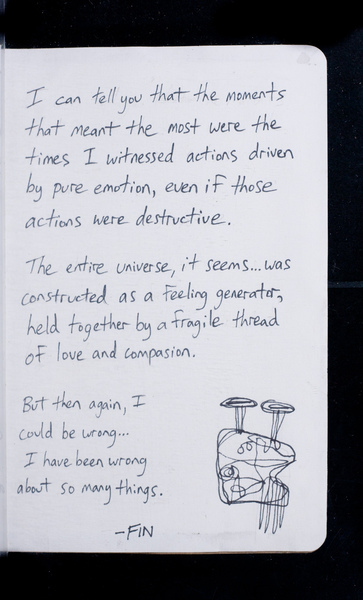 I can tell you that the moments
that meant the most were the
times I witnessed actions driven
by pure emotion, even if those
actions were destructive.
The entire universe, it seems...was
constructed as a feeling generator,
held together by a fragile thread
of love and compasion.
But then again, I
could be wrong...
I have been wrong
about so many things.
-FIN